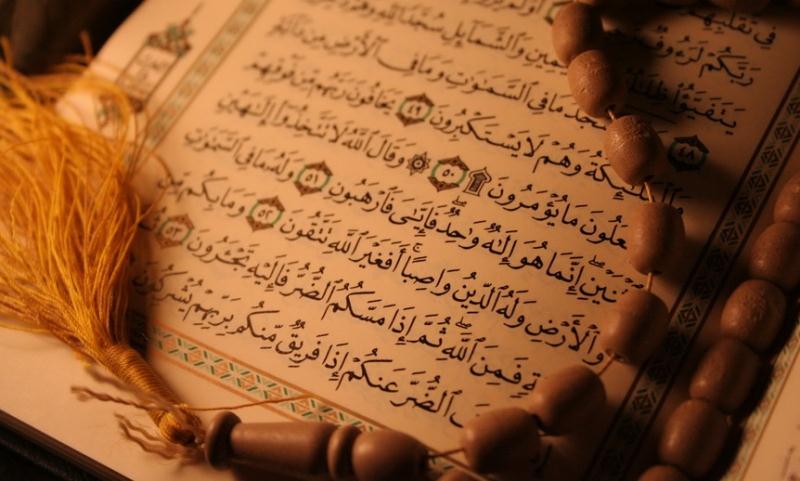 فِى تَقَلُّبِهِمْ
رَبَّكُمْ لَرَءُوفٌ أَوَلَمْ
يَتَفَيَّؤُا۟ ظِلَٰلُهُۥ ٱلْيَمِينِ وَٱلشَّمَآئِلِ سُجَّدًا لِّلَّهِ
٤٨ يَسْجُدُ مَا فِى ٱلسَّمَٰوَٰتِ وَمَا فِى ٱلْأَرْضِ مِن دَآبَّةٍ
وَٱلْمَلَٰٓئِكَةُ وَهُمْ لَا يَسْتَكْبِرُونَ ٤٩ يَخَافُونَ رَبَّهُم مِّن فَوْقِهِمْ
عَلُونَ مَا يُؤْمَرُونَ ۩ ٥٠ ۞ وَقَالَ ٱللَّهُ لَا تَتَّخِذُوٓا۟ إِلَٰهَيْنِ
نَيْنِ إِنَّمَا هُوَ إِلَٰهٌ وَٰحِدٌ فَإِيَّٰىَ فَٱرْهَبُونِ ٥١ وَلَهُۥ مَا فِى ٱلسَّمَٰوَٰتِ
وَٱلْأَرْضِ وَلَهُ ٱلدِّينُ وَاصِبًا أَفَغَيْرَ ٱللَّهِ تَتَّقُونَ ٥٢ وَمَا بِكُم مِّن
ةٍ فَمِنَ ٱللَّهِ ثُمَّ إِذَا مَسَّكُمُ ٱلضُّرُّ فَإِلَيْهِ تَجْـَٔرُونَ ٥٣
ٱلضُّرَّ عَنكُمْ إِذَا فَرِيقٌ مِّنكُم بِرَبِّهِمْ يُشْرِكُونَ